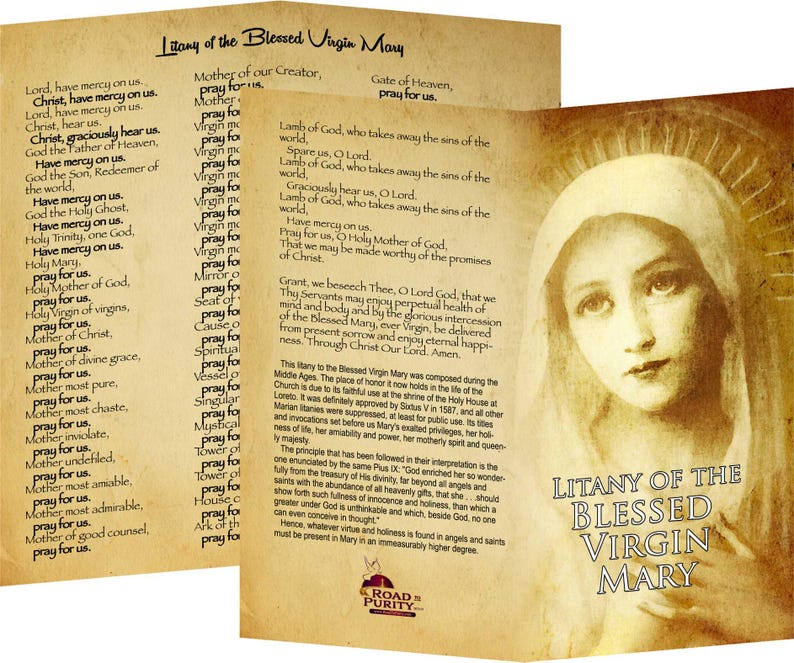 Litany of the Blessed Virgin Mary
Lord, have mercy on us.
Christ, have mercy on us.
Lord, have mercy on us.
Christ, hear us.
Christ, graciously hear us.
God the Father of Heaven,
Have mercy on us.
God the Son, Redeemer of
the world,
Have mercy on us.
God the Holy Ghost,
Have mercy on us.
Holy Trinity, one God,
Have mercy on us.
Holy Mary,
pray for us.
Holy Mother of God,
pray for us.
Holy Virgin of virgins,
pray for us.
Mother of Christ,
pray for us.
Mother of divine grace,
pray for us.
Mother most pure,
pray for us.
Mother most chaste,
pray for us.
Mother inviolate,
pray for us.
Mother undefiled,
pray for us.
Mother most amiable,
pray for us.
Mother most admirable,
pray for us.
Mother of good counsel,
pray for us.
Mother of our Creator,
pray for us.
Mother
pray for
Virgin mo
pray for
Virgin
pray for
Virgin
pray for
Virgin
pray for
Virgin
pray for
Virgin
pray for
Mirror o
pray for
Seat of
pray for
Cause o
pray for
Spiritual
pray for
Vessel
pray for
Singular
pray for
Mystical
pray for
Tower of
pray for
Tower
pray for
House o
pray for
Ark of th
pray for
Gate of Heaven,
pray for us.
Lamb of God, who takes away the sins of the
world,
Spare us, O Lord.
Lamb of God, who takes away the sins of the
world,
Graciously hear us, O Lord.
Lamb of God, who takes away the sins of the
world,
Have mercy on us.
Pray for us, O Holy Mother of God,
That we may be made worthy of the promises
of Christ.
Grant, we beseech Thee, O Lord God, that we
Thy Servants may enjoy perpetual health of
mind and body and by the glorious intercession
of the Blessed Mary, ever Virgin, be delivered
from present sorrow and enjoy eternal happi-
ness. Through Christ Our Lord. Amen.
This litany to the Blessed Virgin Mary was composed during the
Middle Ages. The place of honor it now holds in the life of the
Church is due to its faithful use at the shrine of the Holy House at
Loreto. It was definitely approved by Sixtus V in 1587, and all other
Marian litanies were suppressed, at least for public use. Its titles
and invocations set before us Mary's exalted privileges, her holi-
ness of life, her amiability and power, her motherly spirit and queen-
ly majesty.
The principle that has been followed in their interpretation is the
one enunciated by the same Pius IX: "God enriched her so wonder-
fully from the treasury of His divinity, far beyond all angels and
saints with the abundance of all heavenly gifts, that she . . .should
show forth such fullness of innocence and holiness, than which a
greater under God is unthinkable and which, beside God, no one
can even conceive in thought."
Hence, whatever virtue and holiness is found in angels and saints
must be present in Mary in an immeasurably higher degree.
ROAD TO
PURITY
LITANY OF THE
BLESSED
VIRGIN
MARY